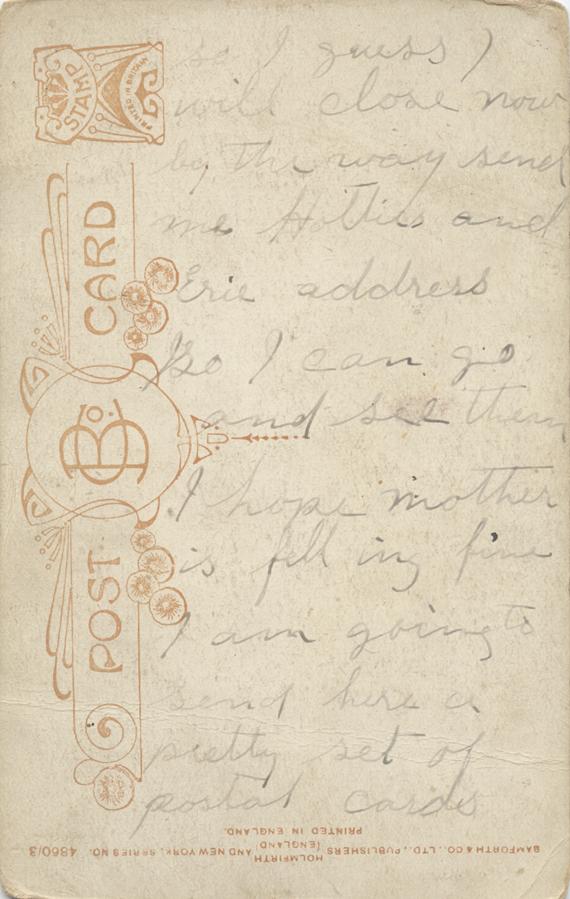 so I guess I
will close now
by the way send
me Hotties and
Erie address
so I can go
and see them
I hope mother
is fell ing fine
I am going to
send here a
pretty set of
postal cards
STAMP
PRINTED IN BRITAIN
POST CARD
B Co.
BAMFORTH & CO., LTD., PUBLISHERS (HOLMFIRTH ENGLAND) AND NEW YORK. SERIES NO. 4860/3
PRINTED IN ENGLAND.